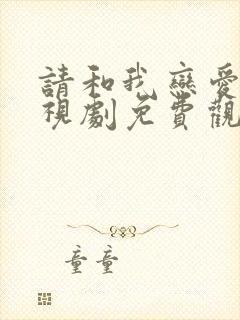 請和我戀愛
視劇免費觀
童童